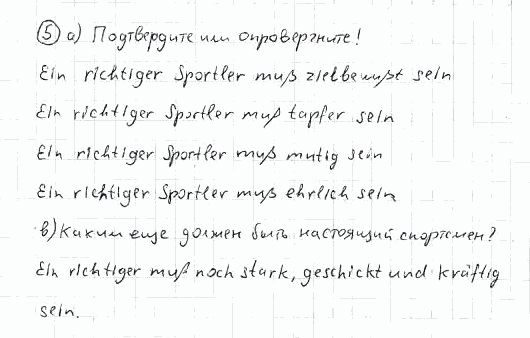 ⑤ а) Подтвердите или опровергните!
Ein richtiger Sportler muß zielbewußt sein
Ein richtiger Sportler muß tapfer sein
Ein richtiger Sportler muß mutig sein
Ein richtiger Sportler muß ehrlich sein
в) Каким еще должен быть настоящий спортсмен?
Ein richtiger muß noch stark, geschickt und kräftig
sein.